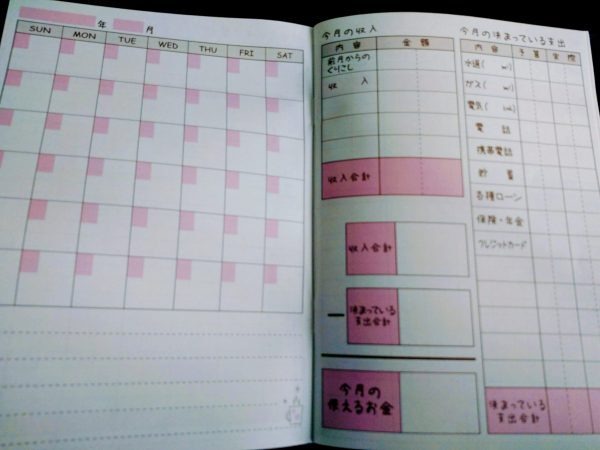 年 月
SUN MON TUE WED THU FRI SAT
今月の収入
内容 金額
前月からの
くりこし
収入
収入合計
収入合計
－
決まっている
支出合計
今月の
使えるお金
今月の決まっている支出
内容 予算 実際
水道( m³)
ガス( m³)
電気(
電話
携帯電話
貯蓄
各種ローン
保険・年金
クレジットカード
決まっている
支出合計